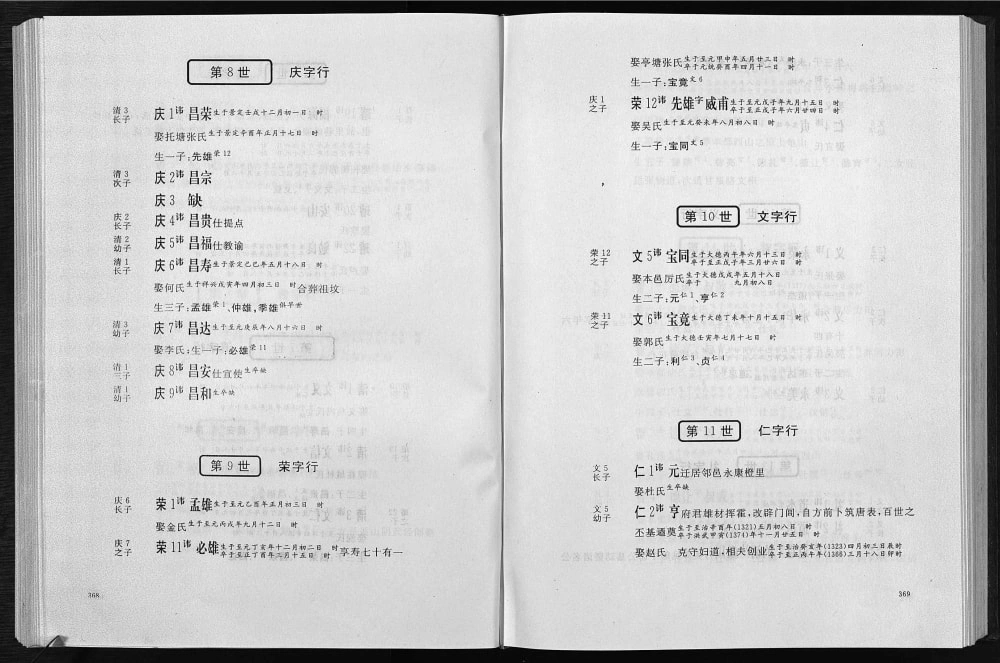 第8世 庆字行
清3长子 庆1讳昌荣生于景定壬戌十二月初一日 时
娶托塘张氏生于景定辛酉年正月十七日 时
生一子:先雄荣12
清3次子 庆2讳昌宗
庆3 缺
庆2长子 庆4讳昌贵仕提点
清2幼子 庆5讳昌福仕教谕
清1长子 庆6讳昌寿生于景定己巳年五月十八日 时
娶何氏生于祥兴戊寅年四月初三日 时合葬祖坟
生三子:孟雄荣1、仲雄,季雄俱早世
清3幼子 庆7讳昌达生于至元庚辰年八月十六日 时
娶李氏;生一子:必雄荣11
清1三子 庆8讳昌安仕宣使生卒缺
清1幼子 庆9讳昌和生卒缺
第9世 荣字行
庆6长子 荣1讳孟雄生于至元己酉年正月初三日 时
娶金氏生于至元丙戌年九月十二日 时
庆7之子 荣11讳必雄生于至元丁亥年十二月初二日 时卒于至正丁酉年三月十五日 时享寿七十有一
368
娶亭塘张氏生于至元甲申年五月廿三日 时卒于元统癸酉年四月十一日 时
生一子:宝竟文6
庆1之子 荣12讳先雄字威甫生于至元戊子年九月十五日 时卒于至正戊子年六月廿四日 时
娶吴氏生于至元癸未年八月初八日 时
生一子:宝同文5
第10世 文字行
荣12之子 文5讳宝同生于大德丙午年六月十三日 时卒于至正戊子年三月廿六日 时
娶本邑厉氏生于大德戊戌年五月十八日卒于 九月初八日
生二子:元仁1、亨仁2
荣11之子 文6讳宝竟生于大德丁未年十月十五日 时
娶郭氏生于大德壬寅年七月十七日 时
生二子:利仁3、贞仁4
第11世 仁字行
文5长子 仁1讳元迁居邻邑永康橙里
娶杜氏生卒缺
文5幼子 仁2讳亨府君雄材挥霍,改辟门闾,自方前卜筑唐表,百世之
丕基遹奠生于至治辛酉年(1321)五月初八日 时卒于洪武甲寅(1374)年十一月廿五日 时
娶赵氏 克守妇道,相夫创业生于至治癸亥年(1323)四月初三日辰时卒于至正丙午年(1366)三月十八日卯时
369